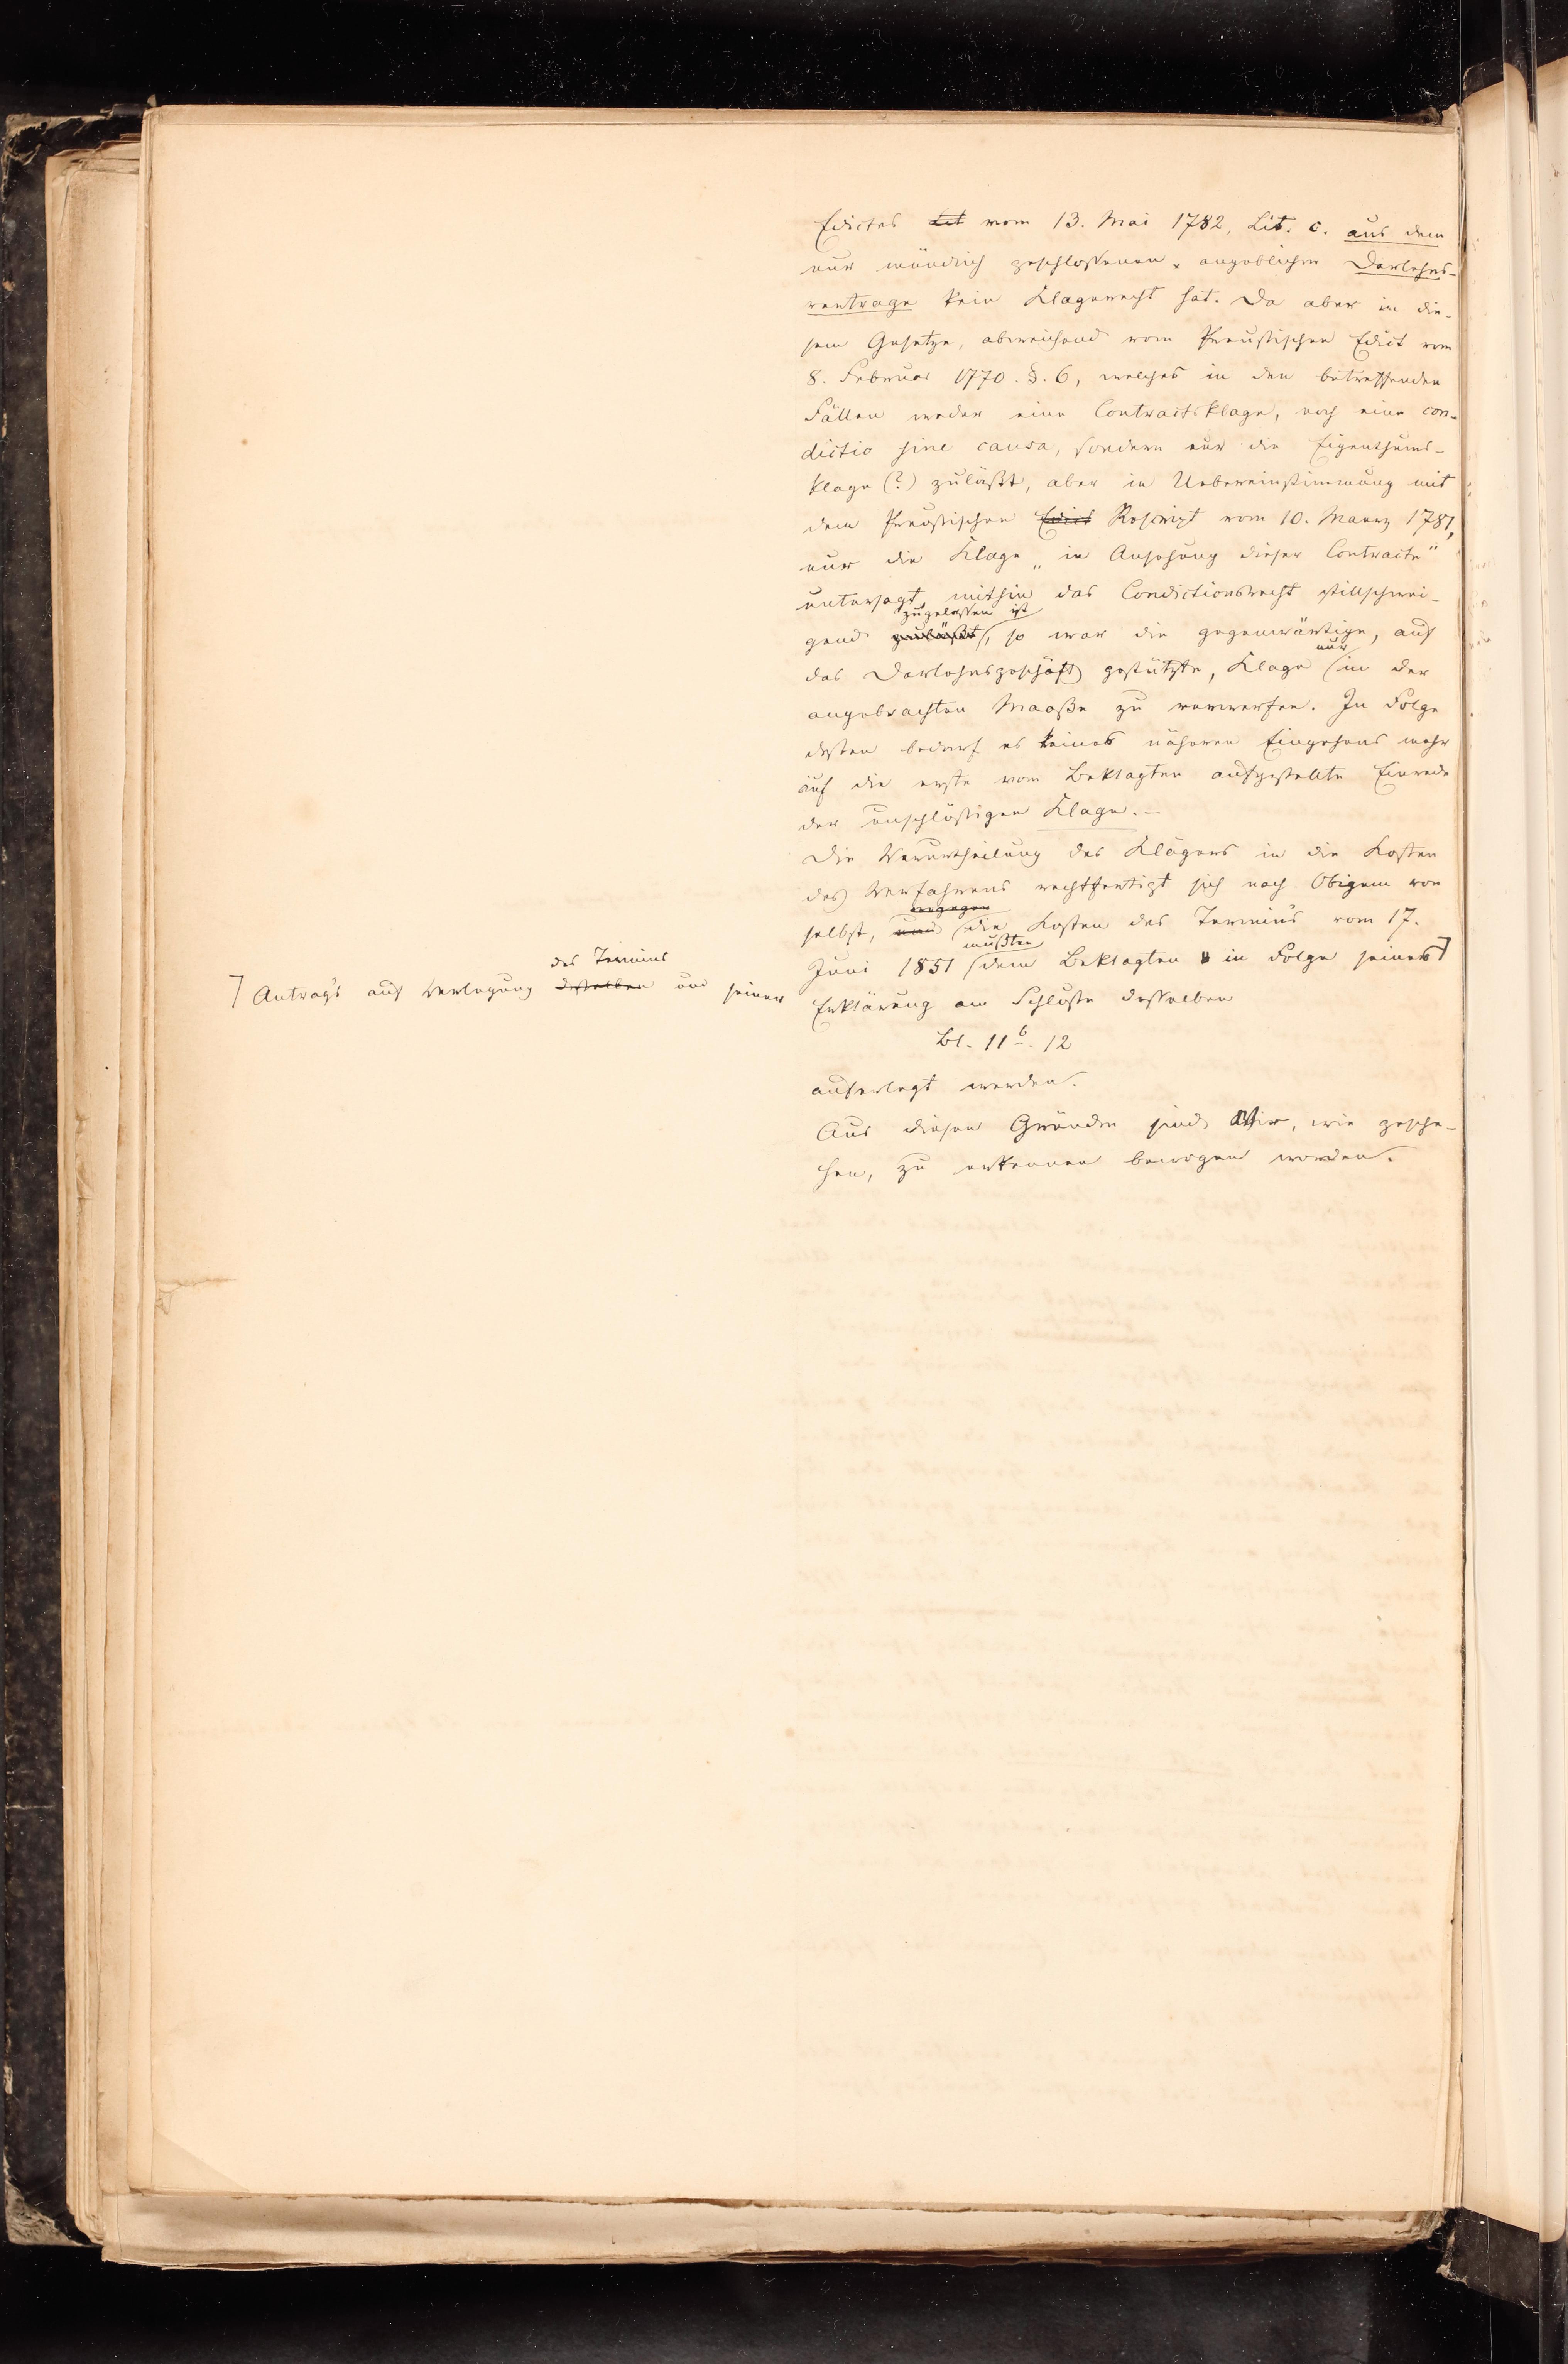 Edictes Lit vom 13. Mai 1782, Lit. c. aus dem
nur mündlich geschlossenen, angeblichen Darlehns-
vertrage kein Klagerecht hat. Da aber in die-
sem Gesetze, abweichend vom Preußischen Edict vom
8. Februar 1770. §. 6, welches in den betreffenden
Fällen weder eine Contractsklage, noch eine con-
dictio sine causa, sondern nur die Eigenthums-
klage (?) zuläßt, aber in Uebereinstimmung mit
dem Preußischen Edict Rescript vom 10. Maerz 1787,
nur die Klage „in Ansehung dieser Contracte"
untersagt, mithin das Condictionsrecht stillschwei-
zugelassen ist
gend zuläßt, so war die gegenwärtige, auf
nur
das Darlehnsgeschäft gestützte, Klage in der
angebrachten Maaße zu verwerfen. In Folge
dessen bedarf es keines näheren Eingehens mehr
auf die erste vom Beklagten aufgestellte Einrede
der unschlüssigen Klage. –
Die Verurtheilung des Klägers in die Kosten
des Verfahrens rechtfertigt sich nach Obigem von
wogegen
selbst, und die Kosten des Termins vom 17.
mußten
Juni 1851 dem Beklagten in Folge seines ⌉
des Termins
⌉ Antrags auf Verlegung desselben und seiner
Erklärung am Schlusse desselben
Bl. 11b. 12
auferlegt werden.
Aus diesen Gründen sind Wir, wie gesche-
hen, zu erkennen bewogen worden.